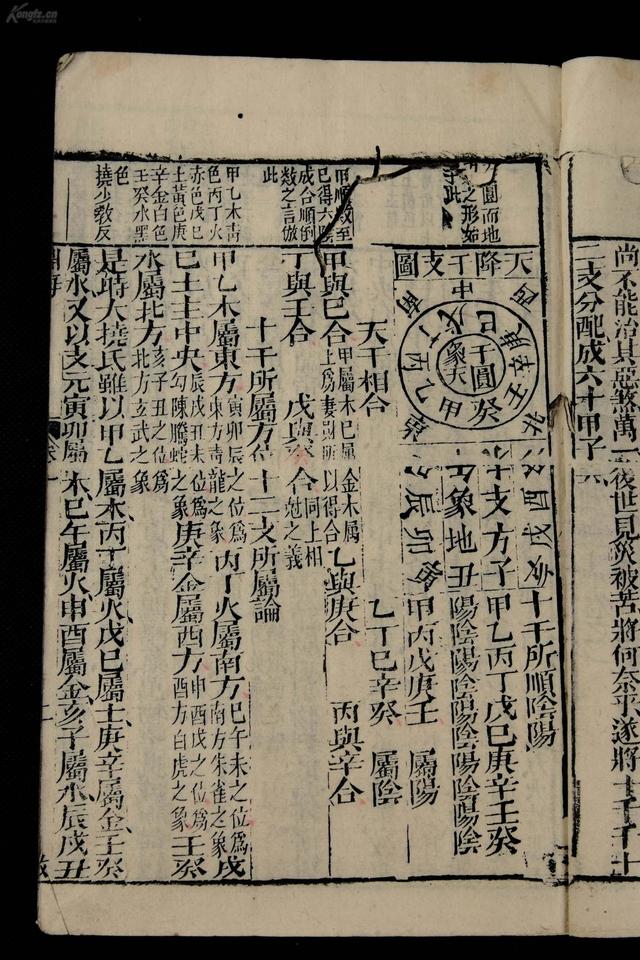 Kongfz.cn
尚不能治其惡煞萬一後世見災被苦將何奈乎遂將十干十
二支分配成六十甲子
圓而地
之形如
此
甲順數至
巳得六
成合順倒
數之言倣
此
甲乙木青
色丙丁火
赤色戊巳
土黃色庚
辛金白色
壬癸水黑
色
撓少敎反
天降干支圖
中
戊巳
庚辛
壬癸
甲乙
丙丁
干圓象天
東
南
西
北
支方象地
子
丑
寅
卯
辰
酉
戌
亥
十干所順陰陽
甲乙丙丁戊巳庚辛壬癸
陽陰陽陰陽陰陽陰陽陰
甲丙戊庚壬 屬陽
乙丁巳辛癸 屬陰
天干相合
甲與巳合 甲屬木巳屬土為妻財所以得合 乙與庚合 金木屬 丙與辛合
丁與壬合 戊與癸合 同上相尅之義
十干所屬方位 十二支所屬論
甲乙木屬東方 寅卯辰之位為東方青龍之象 丙丁火屬南方 巳午未之位為南方朱雀之象 戊
巳土主中央 辰戌丑未位為勾陳騰蛇之象 庚辛金屬西方 申酉戌之位為酉方白虎之象 壬癸
水屬北方 亥子丑之位為北方玄武之象
是時大撓氏雖以甲乙屬木丙丁屬火戊巳屬土庚辛屬金壬癸
屬水又以支元寅卯屬木巳午屬火申酉屬金亥子屬水辰戌丑
淵海
卷一
二